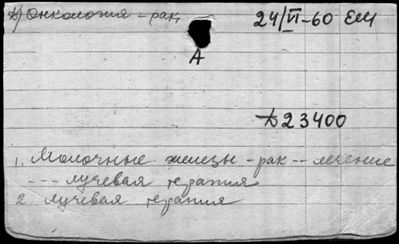 Д) Онкология - рак, 24/VI-60 ЕМ
А
Д23400
1. Молочные железы - рак -- лечение
--- лучевая терапия
2. лучевая терапия